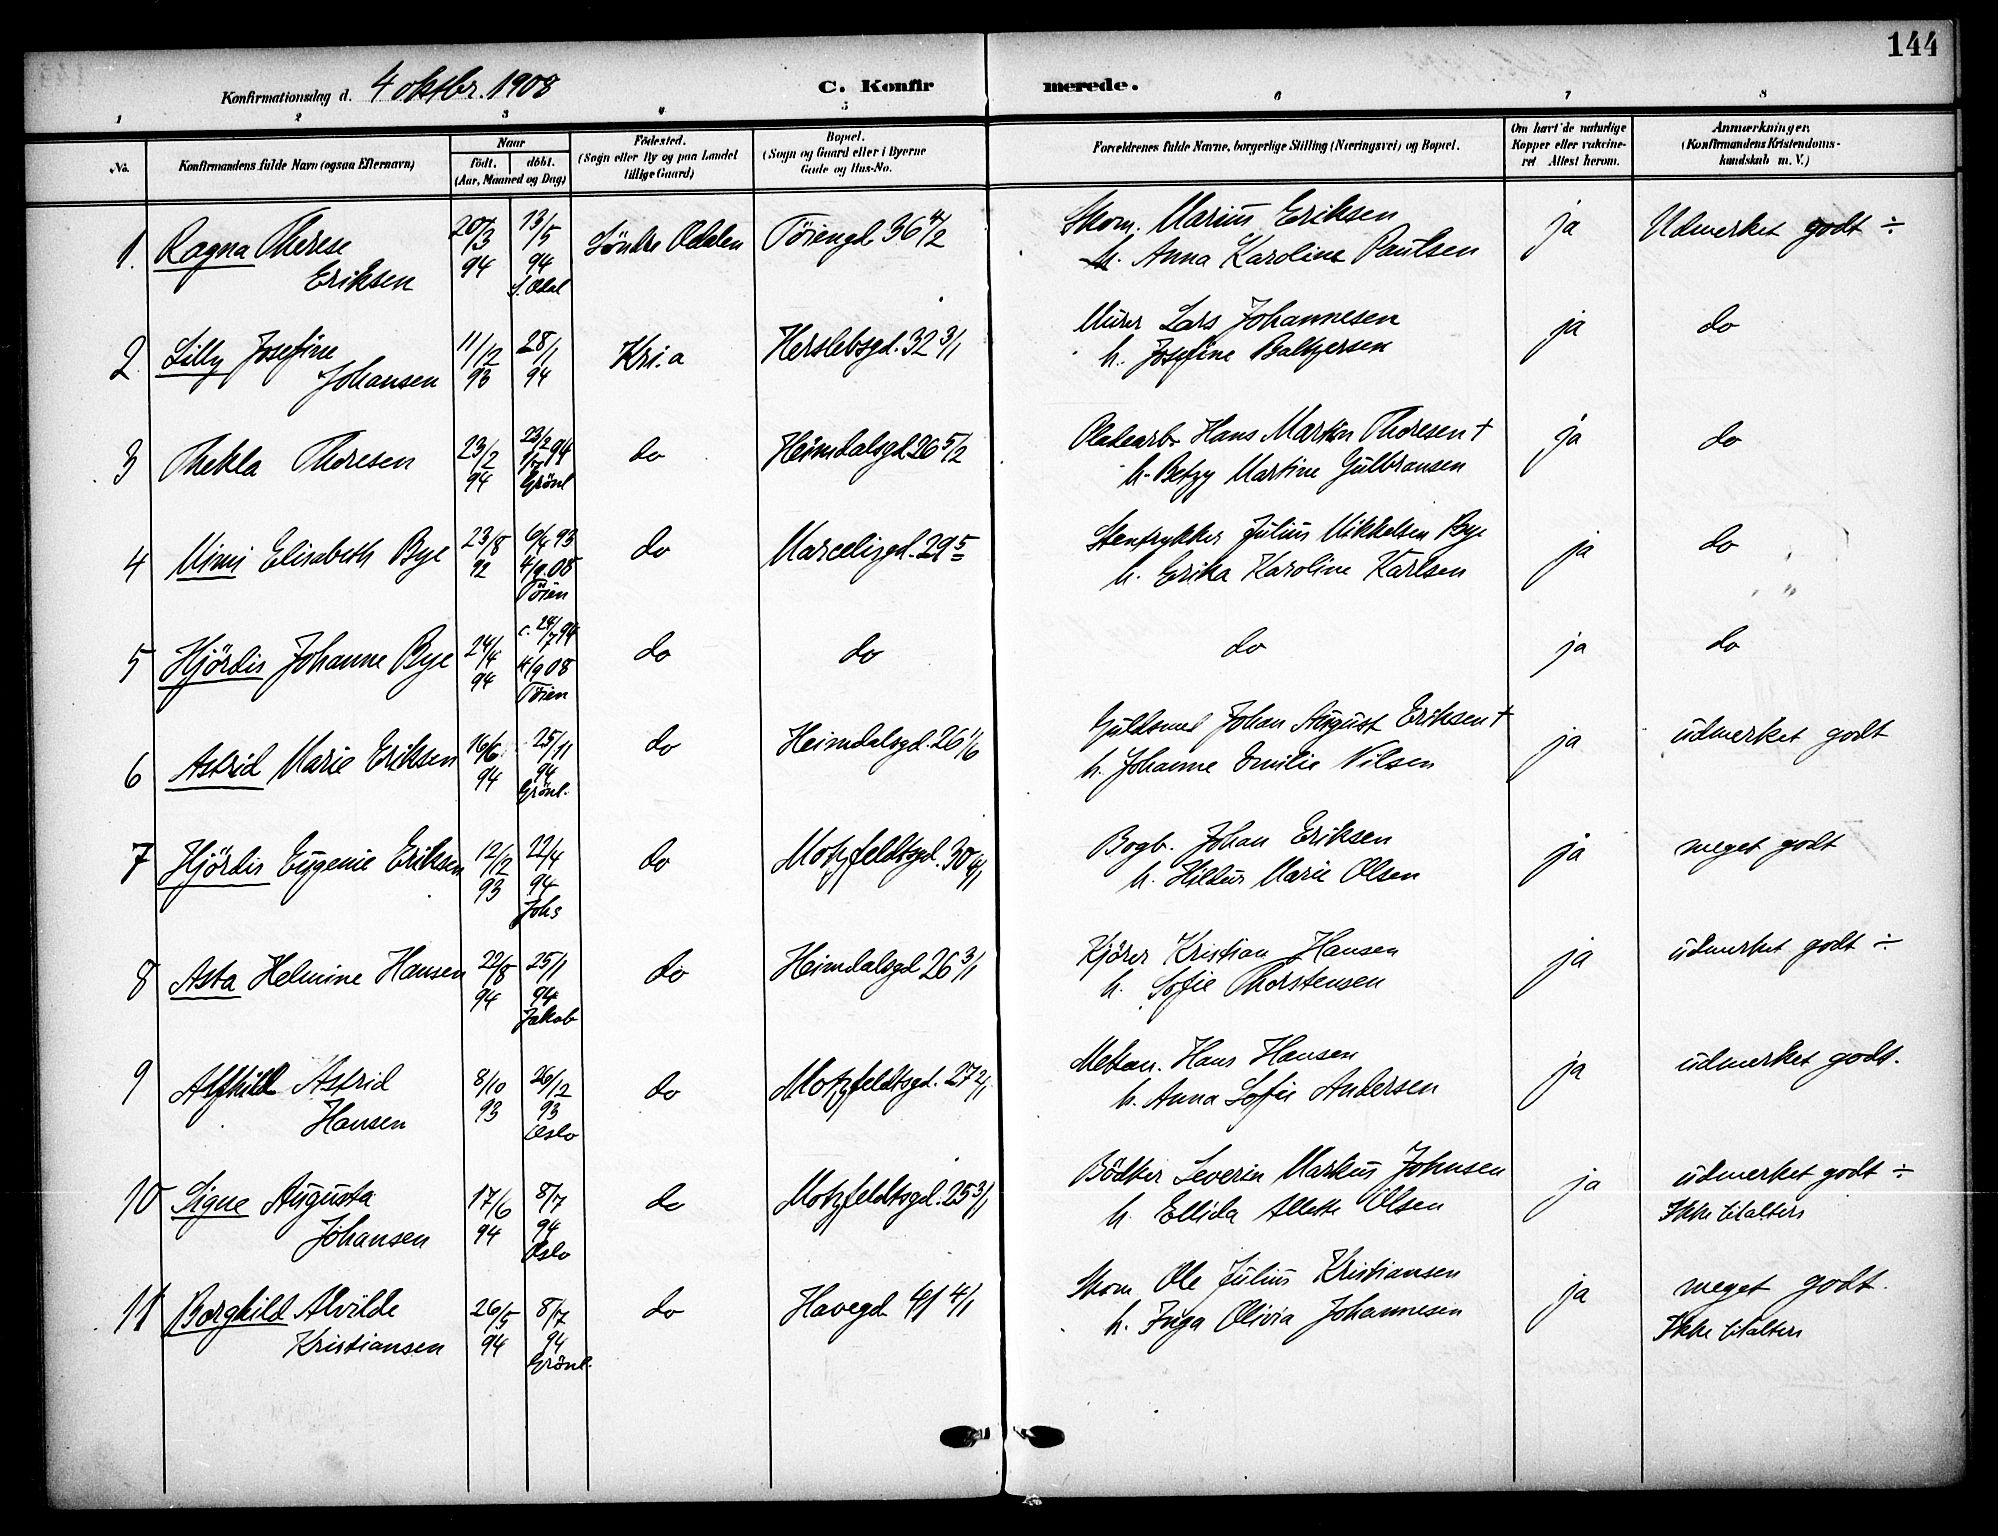 144
Konfirmationsdag d. 4 oktbr. 1908 C. Konfirmerede.
1 2 3 4 5 6 7 8
No.
Konfirmandens fulde Navn (ogsaa Efternavn)
Naar
födt. döbt.
(Aar, Maaned og Dag)
Födested.
(Sogn eller By og paa Landet
tillige Gaard)
Bopæl.
(Sogn og Gaard eller i Byerne
Gade og Hus-No.
Forældrenes fulde Navne, borgerlige Stilling (Næringsvei) og Bopæl.
Om havt de naturlige
Kopper eller vakcine-
ret Attest herom.
Anmærkninger.
(Konfirmandens Kristendoms-
kundskab m. V.)
1. Ragna Therese
Eriksen
20/3
94
13/5
94
S. Odal
Söndre Odalen
Töiengd 36 4/2
Skom. Marius Eriksen
h. Anna Karoline Paulsen
ja
Udmerket godt ÷
2 Lilly Josefine
Johansen
11/12
93
28/1
94
Kr.i.a
Herslebsgd. 32 3/1
Murer Lars Johannesen
h. Josefine Baltzersen
ja
do
3 Thekla Thoresen
23/2
94
94
Grönl
do
Heimdalsgd 26 5/2
Hans Martin Thoresen +
h. Betzy Martine Gulbransen
ja
do
4 Mimi Elisabeth Bye
23/8
92
6/4 93
4/9 08
Töien
do
Marcelisgd. 29 5
Stentrykker Julius Mikkelsen Bye
h. Erika Karoline Karlsen
ja
do
5 Hjördis Johanne Bye
24/4
94
c. 24/7 94
4/9 08
Töien
do
do
do
ja
do
6 Astrid Marie Eriksen
16/6
94
25/11
94
Grönl.
do
Heimdalsgd. 26 1/6
Guldsmed Johan August Eriksen +
h. Johanne Emilie Nilsen
ja
udmerket godt
7 Hjördis Eugenie Eriksen
12/12
93
22/4
94
Johs
do
Motzfeldtsgd. 30 4/1
Bogb. Johan Eriksen
h. Hildur Marie Olsen
ja
meget godt
8 Asta Helmine Hansen
22/8
94
25/1
94
Jakob
do
Heimdalsgd 26 3/1
Kjörer Kristian Hansen
h. Sofie Thorstensen
ja
udmerket godt ÷
9 Alfhild Astrid
Hansen
8/10
93
26/12
93
Oslo
do
Motzfeldtsgd. 27 2/1
Mekan. Hans Hansen
h. Anna Sofie Andersen
ja
udmerket godt.
10 Signe Augusta
Johansen
17/6
94
8/7
94
Oslo
do
Motzfeldtsgd. 25 3/1
Bödker Severin Markus Johnsen
h. Ellida Alette Olsen
ja
udmerket godt ÷
Ikke tilalters
11 Borghild Alvilde
Kristiansen
26/5
94
8/7
94
Grönl.
do
Havegd 41 4/1
Skom Ole Julius Kristiansen
h. Inga Olivia Johannesen
ja
meget godt.
Ikke tilalters